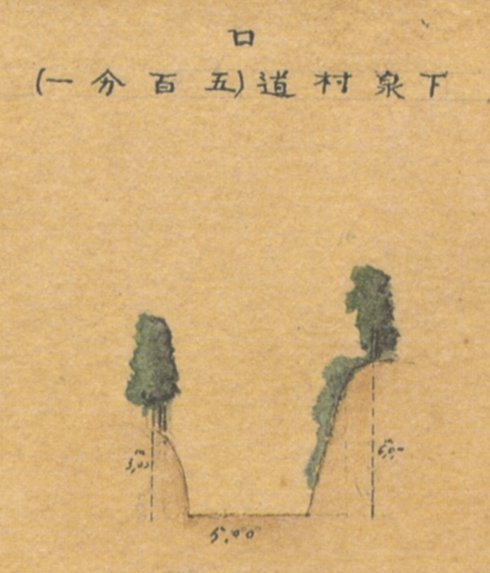 ロ
下泉村道(五百分一)
3,00
6,00
5,00